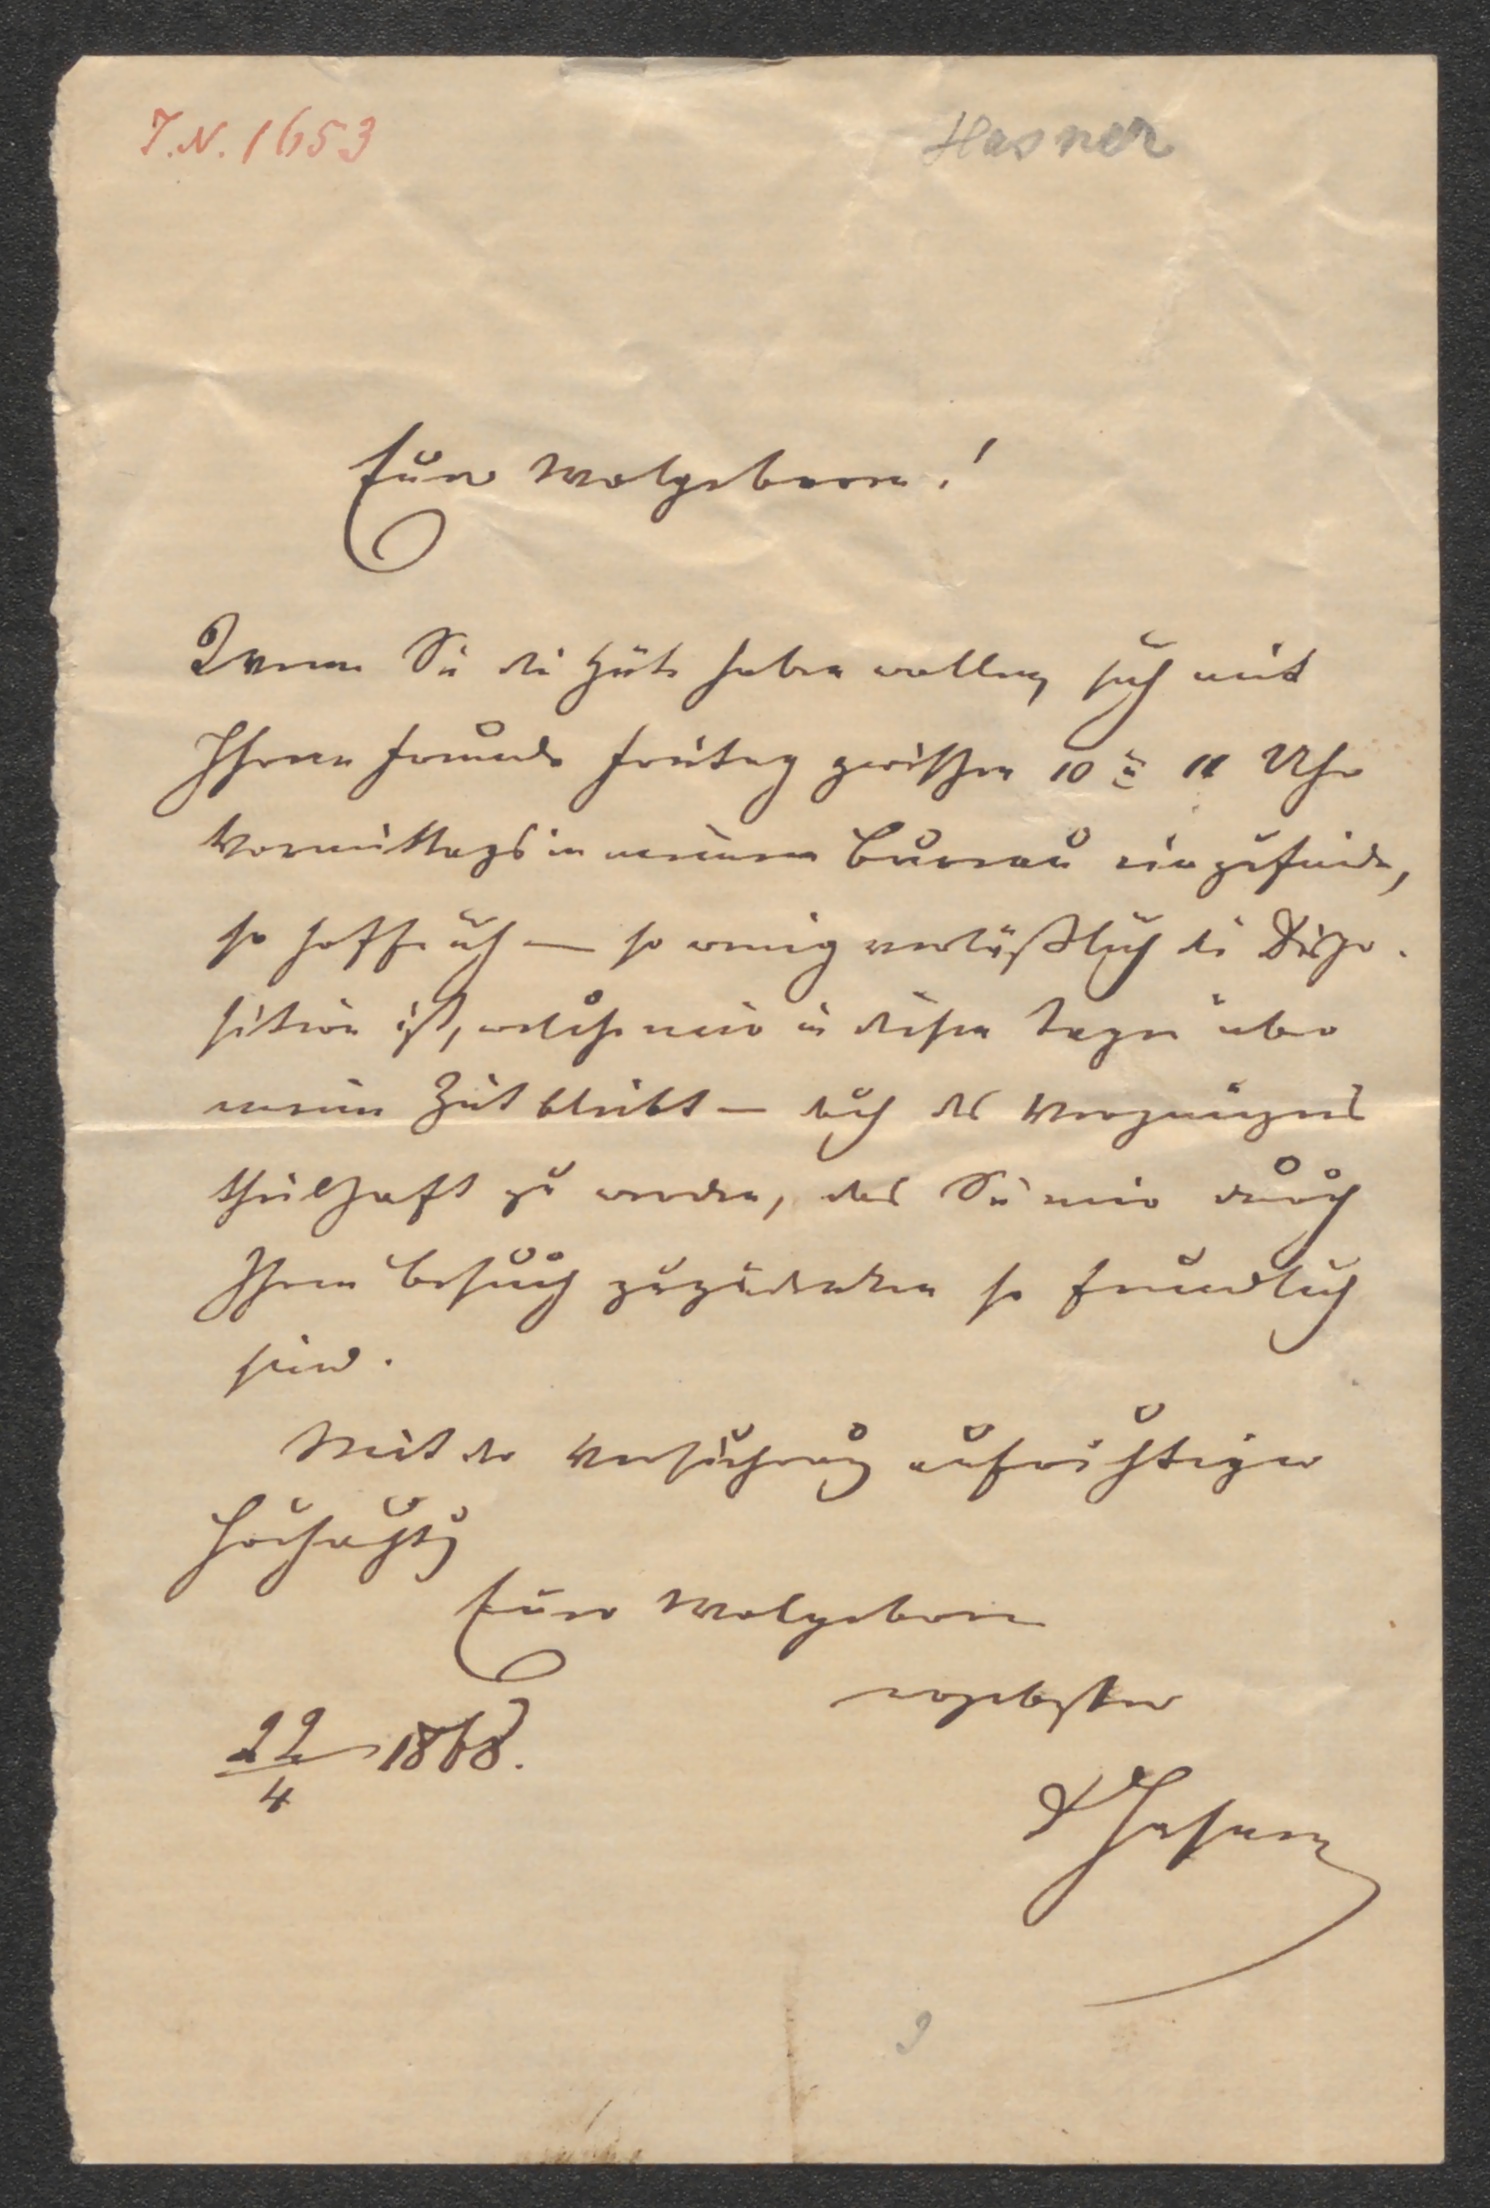 I.N. 1653
Hasner
Euer Wolgeboren!
Wenn Sie die Güte haben wollen, sich mit
Ihrem Freunde Freitag zwischen 10 u 11 Uhr
Vormittags in meinem Bureau einzufinden,
so hoffe ich — so wenig verläßlich die Dispo-
sition ist, welche mir in diesen Tagen über
meine Zeit bleibt — doch des Vergnügens
theilhaft zu werden, das Sie mir durch
Ihren Besuch zuzudenken so freundlich
sind.
Mit der Versicherung aufrichtiger
Hochachtg
Euer Wolgeboren
ergebenster
22/4 1868.
Hasner